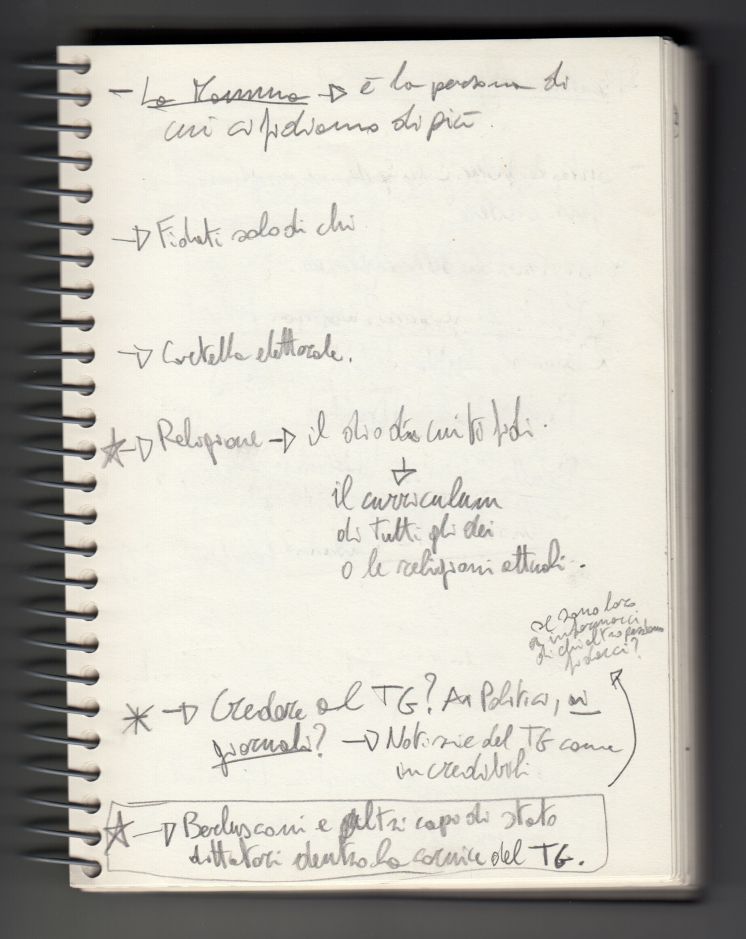 – La Mamma → è la persona di
cui ci fidiamo di più.
→ Fidati solo di chi
→ Cartella elettorale.
☆ → Religione → il dio di cui ti fidi.
↓
il curriculum
di tutti gli dei
o le religioni attuali.
se sono loro
a informarci,
di chi altro possiamo
fidarci?
* → Credere al TG? Ai Politici, ai
giornali? → Notizie del TG come
incredibili
☆ → Berlusconi e altri capo di stato
dittatori dentro la cornice del TG.